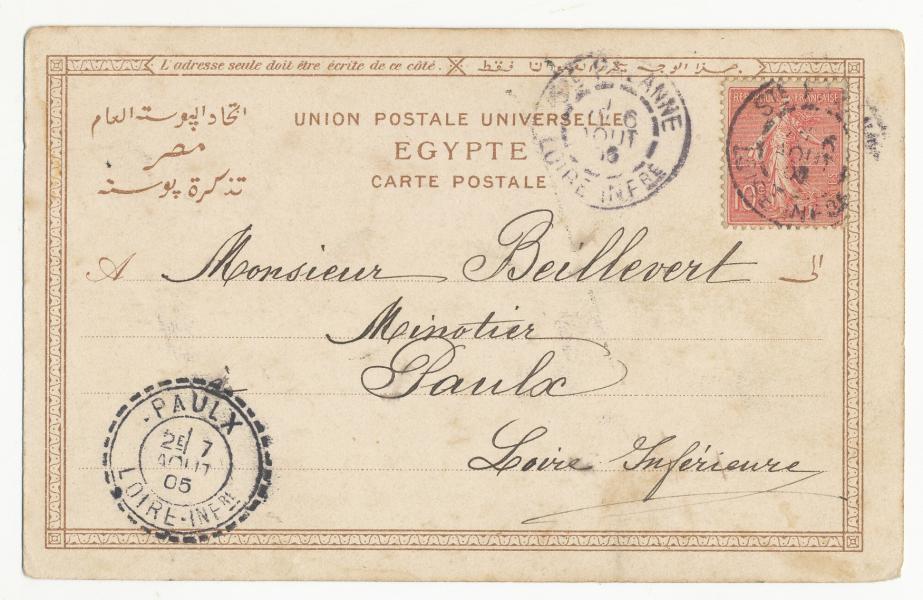 L'adresse seule doit être écrite de ce côté.
اتحاد البوسته العام
مصر
تذكرة بوسته
UNION POSTALE UNIVERSELLE
EGYPTE
CARTE POSTALE
ANNE
6
AOUT
05
LOIRE-INFRE
10c
A Monsieur Beillevert الى
Minotier
Paulx
Loire Inférieure
PAULX
2E 7
AOUT
05
LOIRE-INFRE